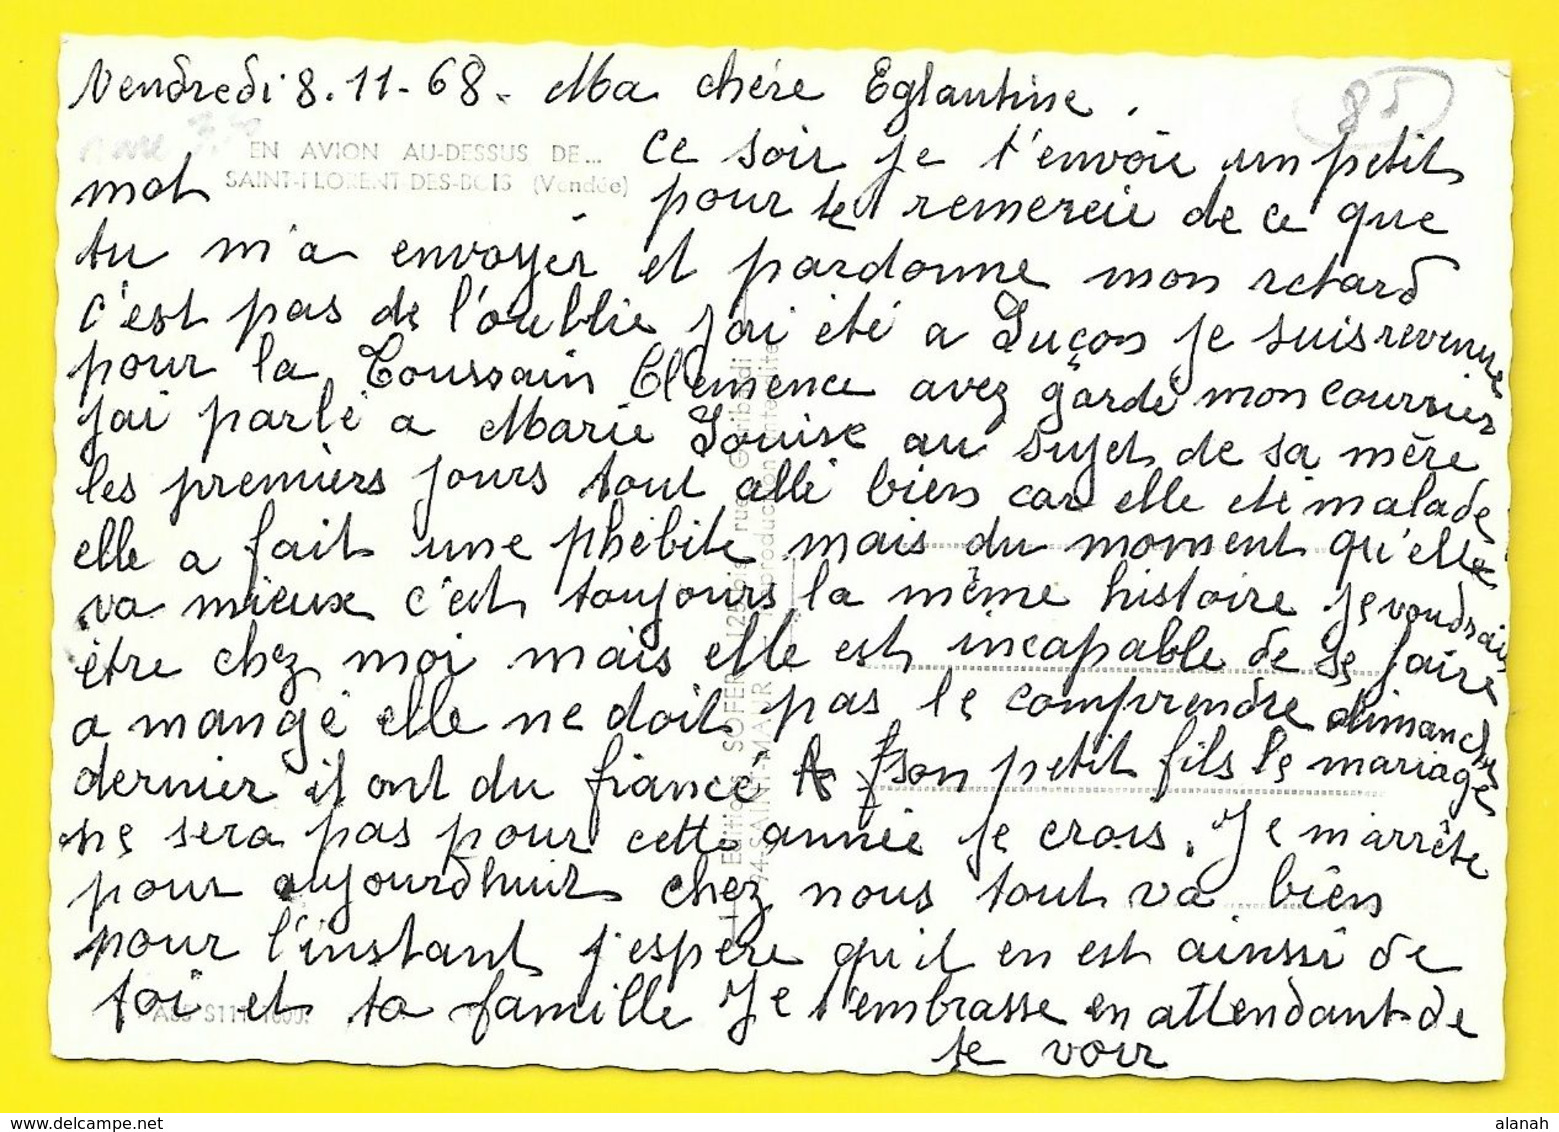 Vendredi 8.11-68. Ma chére Eglantine.
85
EN AVION AU-DESSUS DE...
SAINT-FLORENT-DES-BOIS (Vendée)
ce soir je t'envoie un petit
mot pour te remercie de ce que
tu m'a envoyér et pardonne mon retard
c'est pas de l'oublie j'ai été a Luçon je suis revenue
pour la Toussain Clemence avez gardé mon courrier
j'ai parlé a Marie Louise au sujet de sa mère
les premiers jours tout allé bien car elle eté malade
elle a fait une phébite mais du moment qu'elle
va mieux c'est toujours la même histoire je voudrais
être chez moi mais elle est incapable de se faire
a mangé elle ne doit pas le comprendre dimanche
dernier il ont du fiancé A son petit fils le mariage
ne sera pas pour cette année je crois. Je m'arrête
pour aujourdhuit chez nous tout va bien
pour l'instant j'espère qu'il en est ainssi de
toi et ta famille Je t'embrasse en attendant de
te voir
Editions SOFER 125 bis, rue Garibaldi
94-SAINT-MAUR - Reproduction interdite
alanah